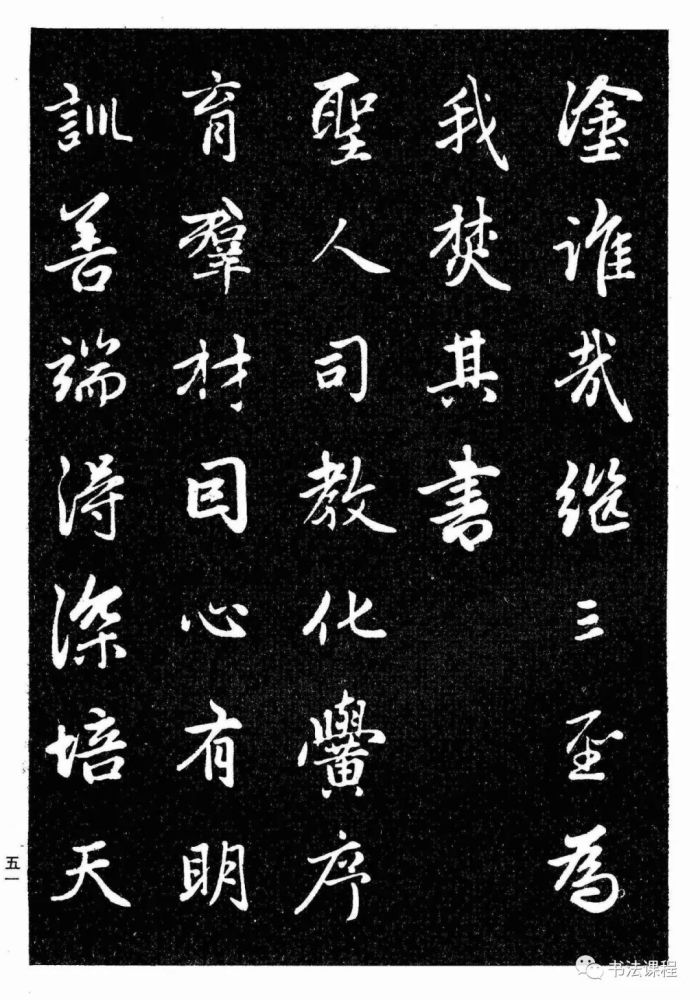 塗誰哉継三圣為
我焚其書
聖人司教化黌序
育羣材因心有明
訓善端得深培天
五一
书法课程